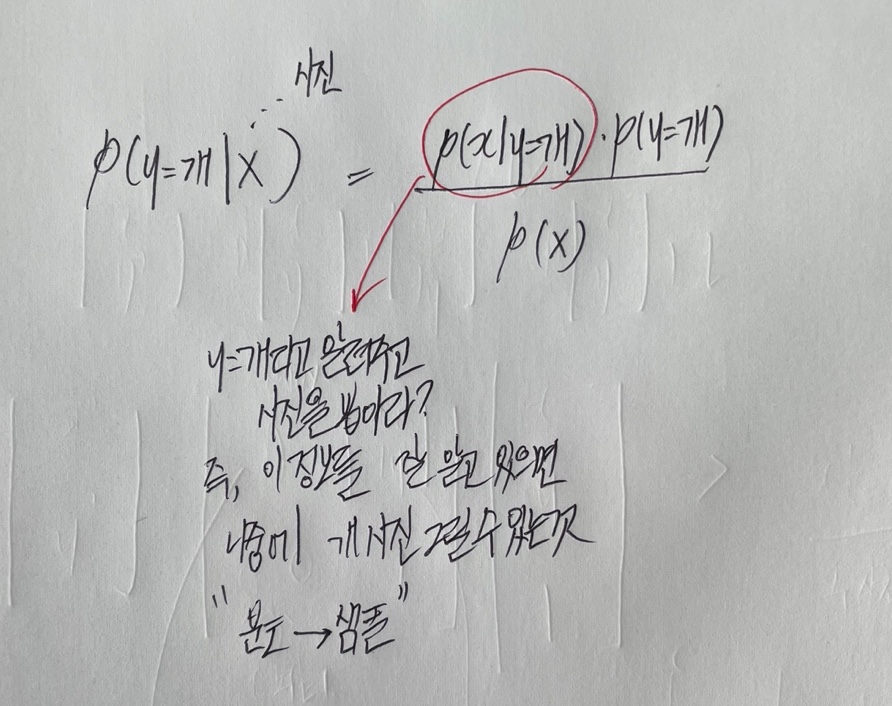 사진
p(y=개|x) = p(x|y=개)·p(y=개)
p(x)
y=개라고 알려주고
사진을 뽑아라?
즉, 이 정보들 잘 알고 있으면
나중에 개 사진 그릴 수 있는 것
"분포→샘플"